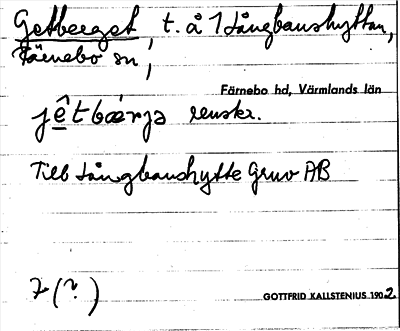 Getberget, t. å 1 Långbanshyttan,
Färnebo sn,
Färnebo hd, Värmlands län
jêtbærja renskr.
Till Långbanshytte Gruv AB
7 (?)
GOTTFRID KALLSTENIUS 1902